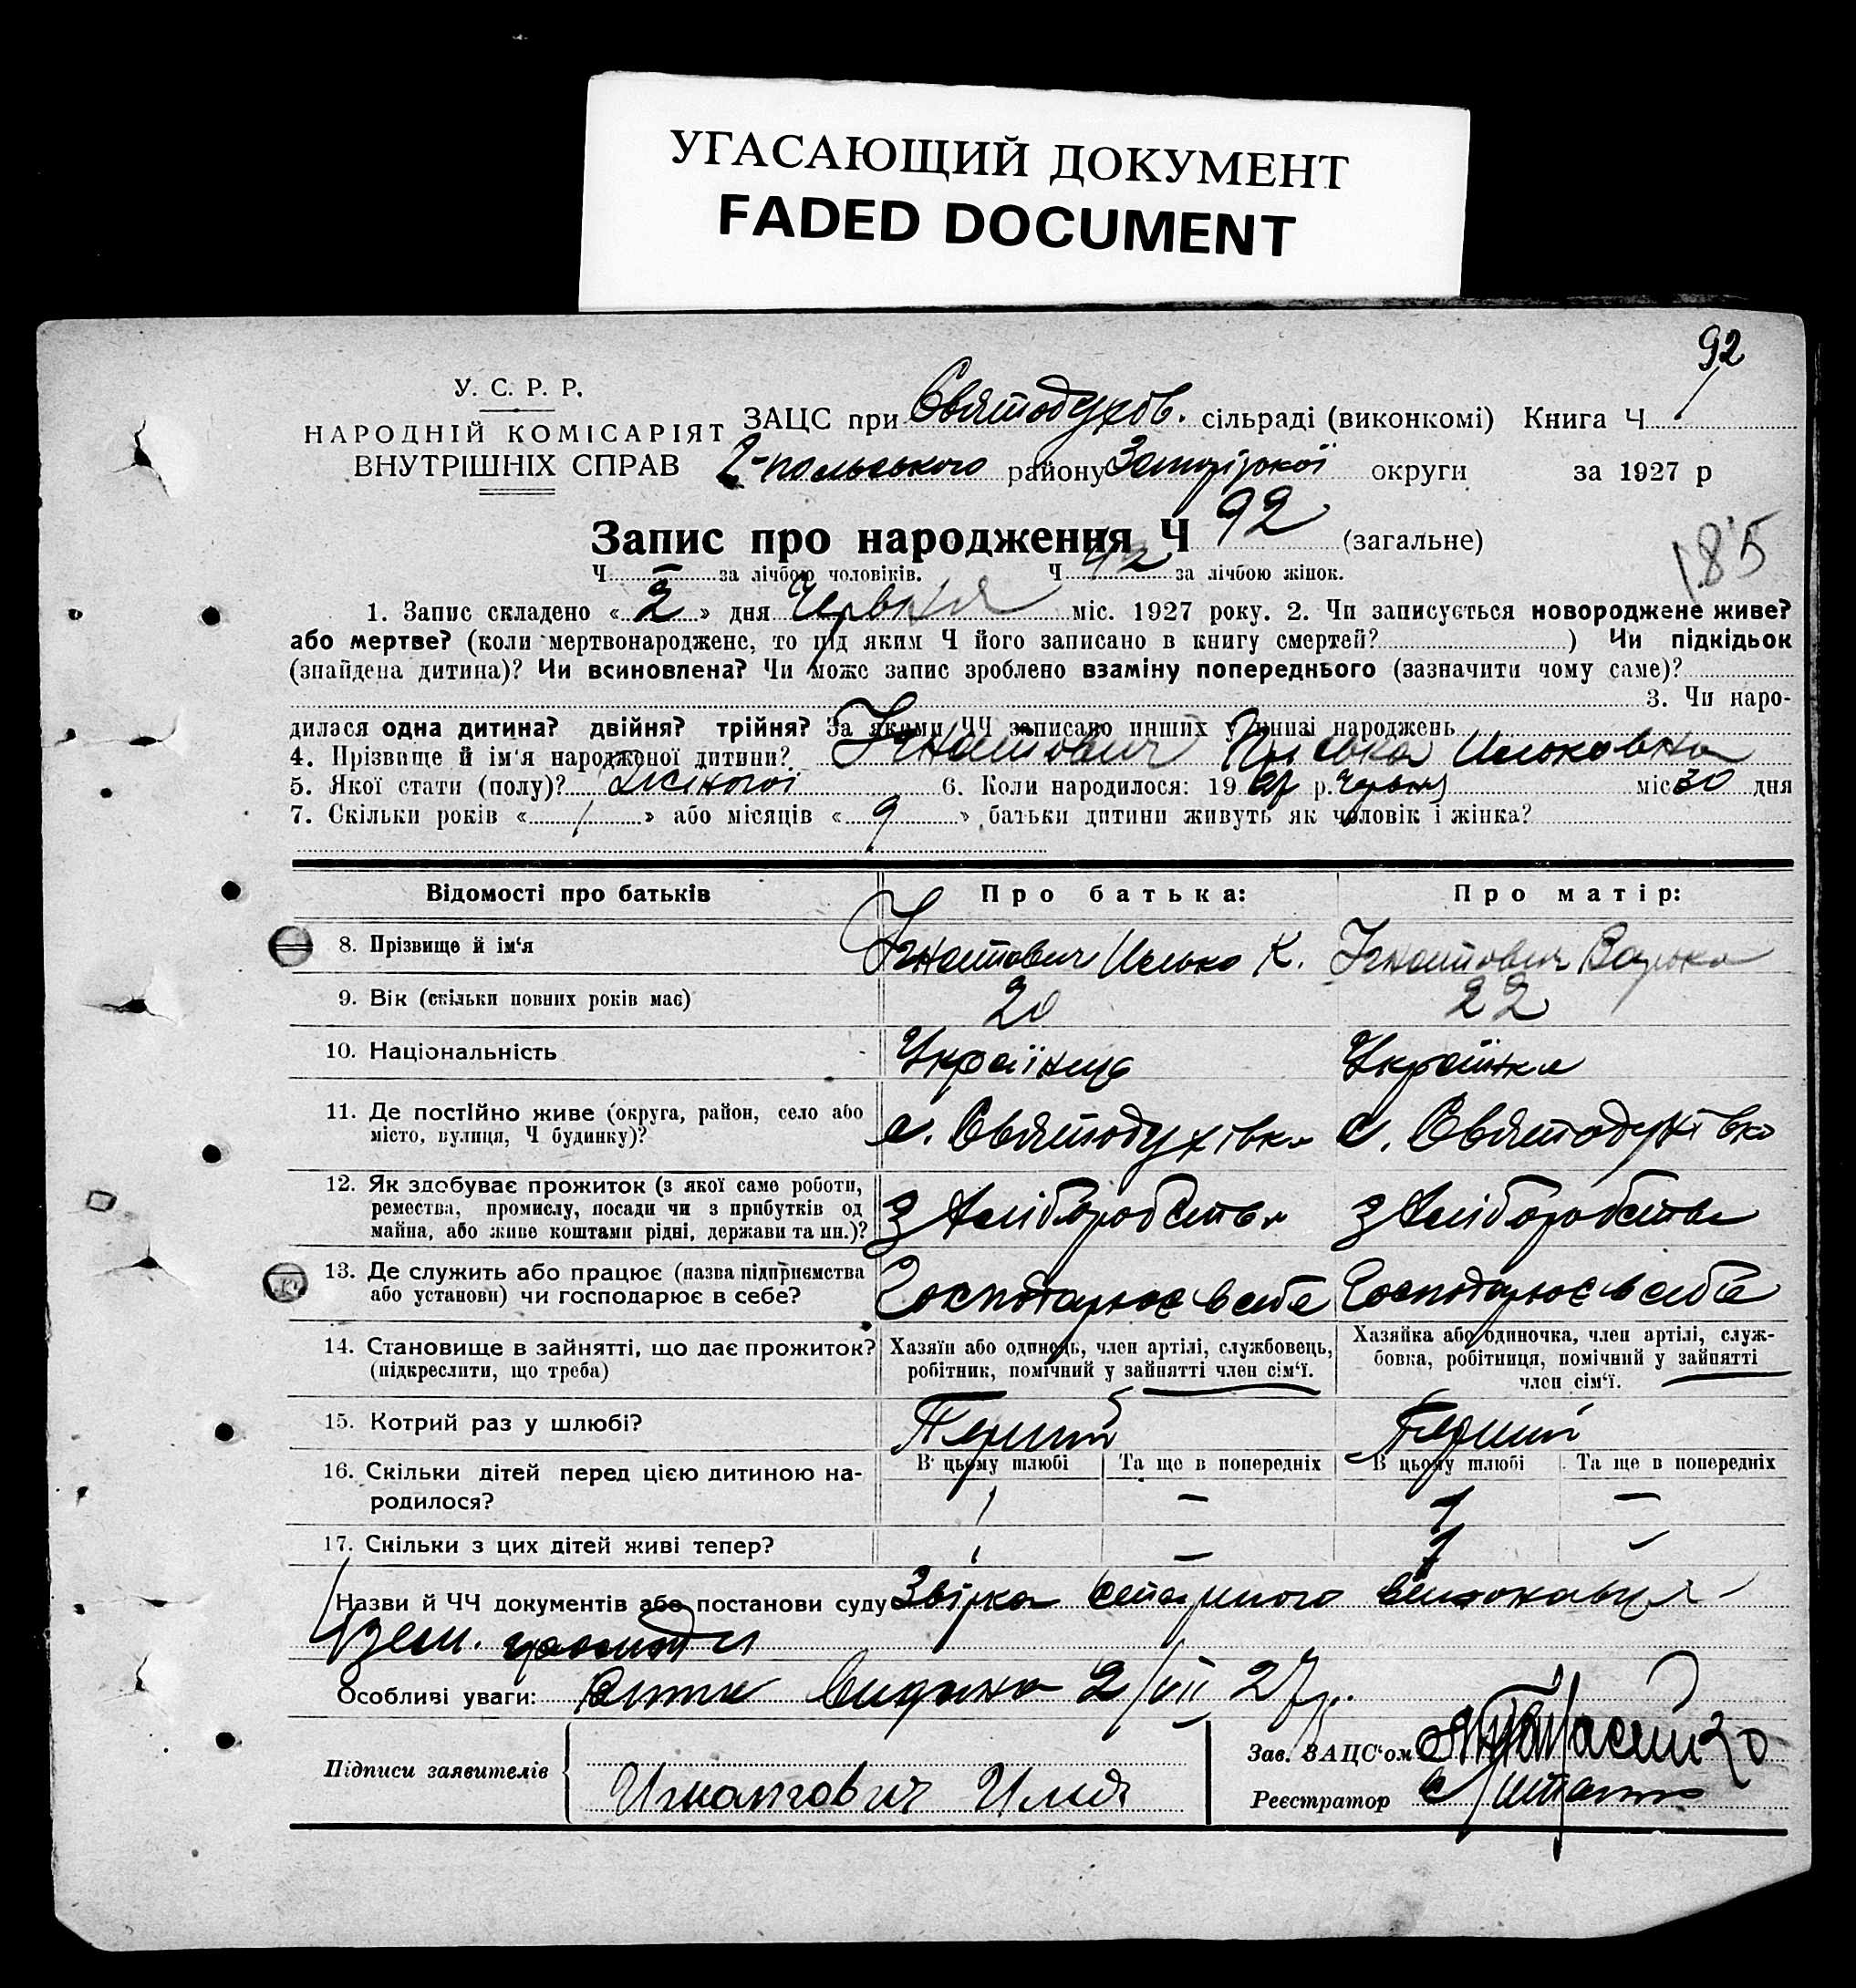 УГАСАЮЩИЙ ДОКУМЕНТ
FADED DOCUMENT
92
У. С. Р. Р.
НАРОДНІЙ КОМІСАРІЯТ
ВНУТРІШНІХ СПРАВ
ЗАЦС при Святодухов. сільраді (виконкомі) Книга Ч
району Запорізької округи за 1927 р
Запис про народження Ч 92 (загальне)
185
Ч — за лічбою чоловіків. Ч 42 за лічбою жінок.
1. Запис складено «2» дня Червня міс. 1927 року. 2. Чи записується новороджене живе?
або мертве? (коли мертвонароджене, то під яким Ч його записано в книгу смертей? ) Чи підкідьок
(знайдена дитина)? Чи всиновлена? Чи може запис зроблено взаміну попереднього (зазначити чому саме)?
3. Чи наро-
дилася одна дитина? двійня? трійня? За якими ЧЧ записано инших у книзі народжень
4. Прізвище й ім'я народженої дитини? Ігнатович Ільковна
5. Якої стати (полу)? Жіночої 6. Коли народилося: 19 27 р. Червня міс 30 дня
7. Скільки років « / » або місяців « 9 » батьки дитини живуть як чоловік і жінка?
Відомості про батьків Про батька: Про матір:
8. Прізвище й ім'я Ігнатович Илько К. Ігнатович Варька
9. Вік (скільки повних років має) 20 22
10. Національність Українець Українка
11. Де постійно живе (округа, район, село або
місто, вулиця, Ч будинку)? с. Святодухівка с. Святодухівка
12. Як здобуває прожиток (з якої саме роботи,
ремества, промислу, посади чи з прибутків од
майна, або живе коштами рідні, держави та ин.)? З хліборобства З хліборобства
13. Де служить або працює (назва підприємства
або установи) чи господарює в себе? Господарює в себе Господарює в себе
14. Становище в зайнятті, що дає прожиток?
(підкреслити, що треба)
Хазяїн або одинець, член артілі, службовець,
робітник, помічний у зайнятті член сім'ї.
Хазяйка або одиночка, член артілі, служ-
бовка, робітниця, помічний у зайнятті
член сім'ї.
15. Котрий раз у шлюбі? Перший Перший
В цьому шлюбі Та ще в попередніх В цьому шлюбі Та ще в попередніх
16. Скільки дітей перед цією дитиною на-
родилося? 1 — 1 —
17. Скільки з цих дітей живі тепер? 1 — 1 —
Назви й ЧЧ документів або постанови суду Звірка старшого виконавця
зем. громади
Особливі уваги: видана 2/VII 27р.
Підписи заявителів
Игнатович Илія
Зав. ЗАЦС'ом
Реєстратор